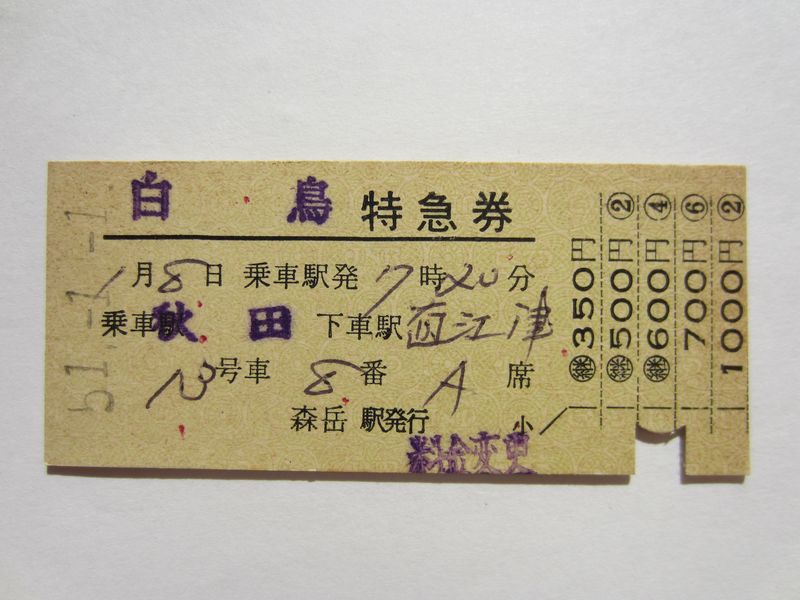 51.-1.-1.
白鳥 特急券
1月8日 乗車駅発 17時20分
乗車駅 秋田 下車駅 直江津
13号車 8番 A席
森岳駅発行 小
料金変更
350円
500円②
600円④
700円⑥
1000円②